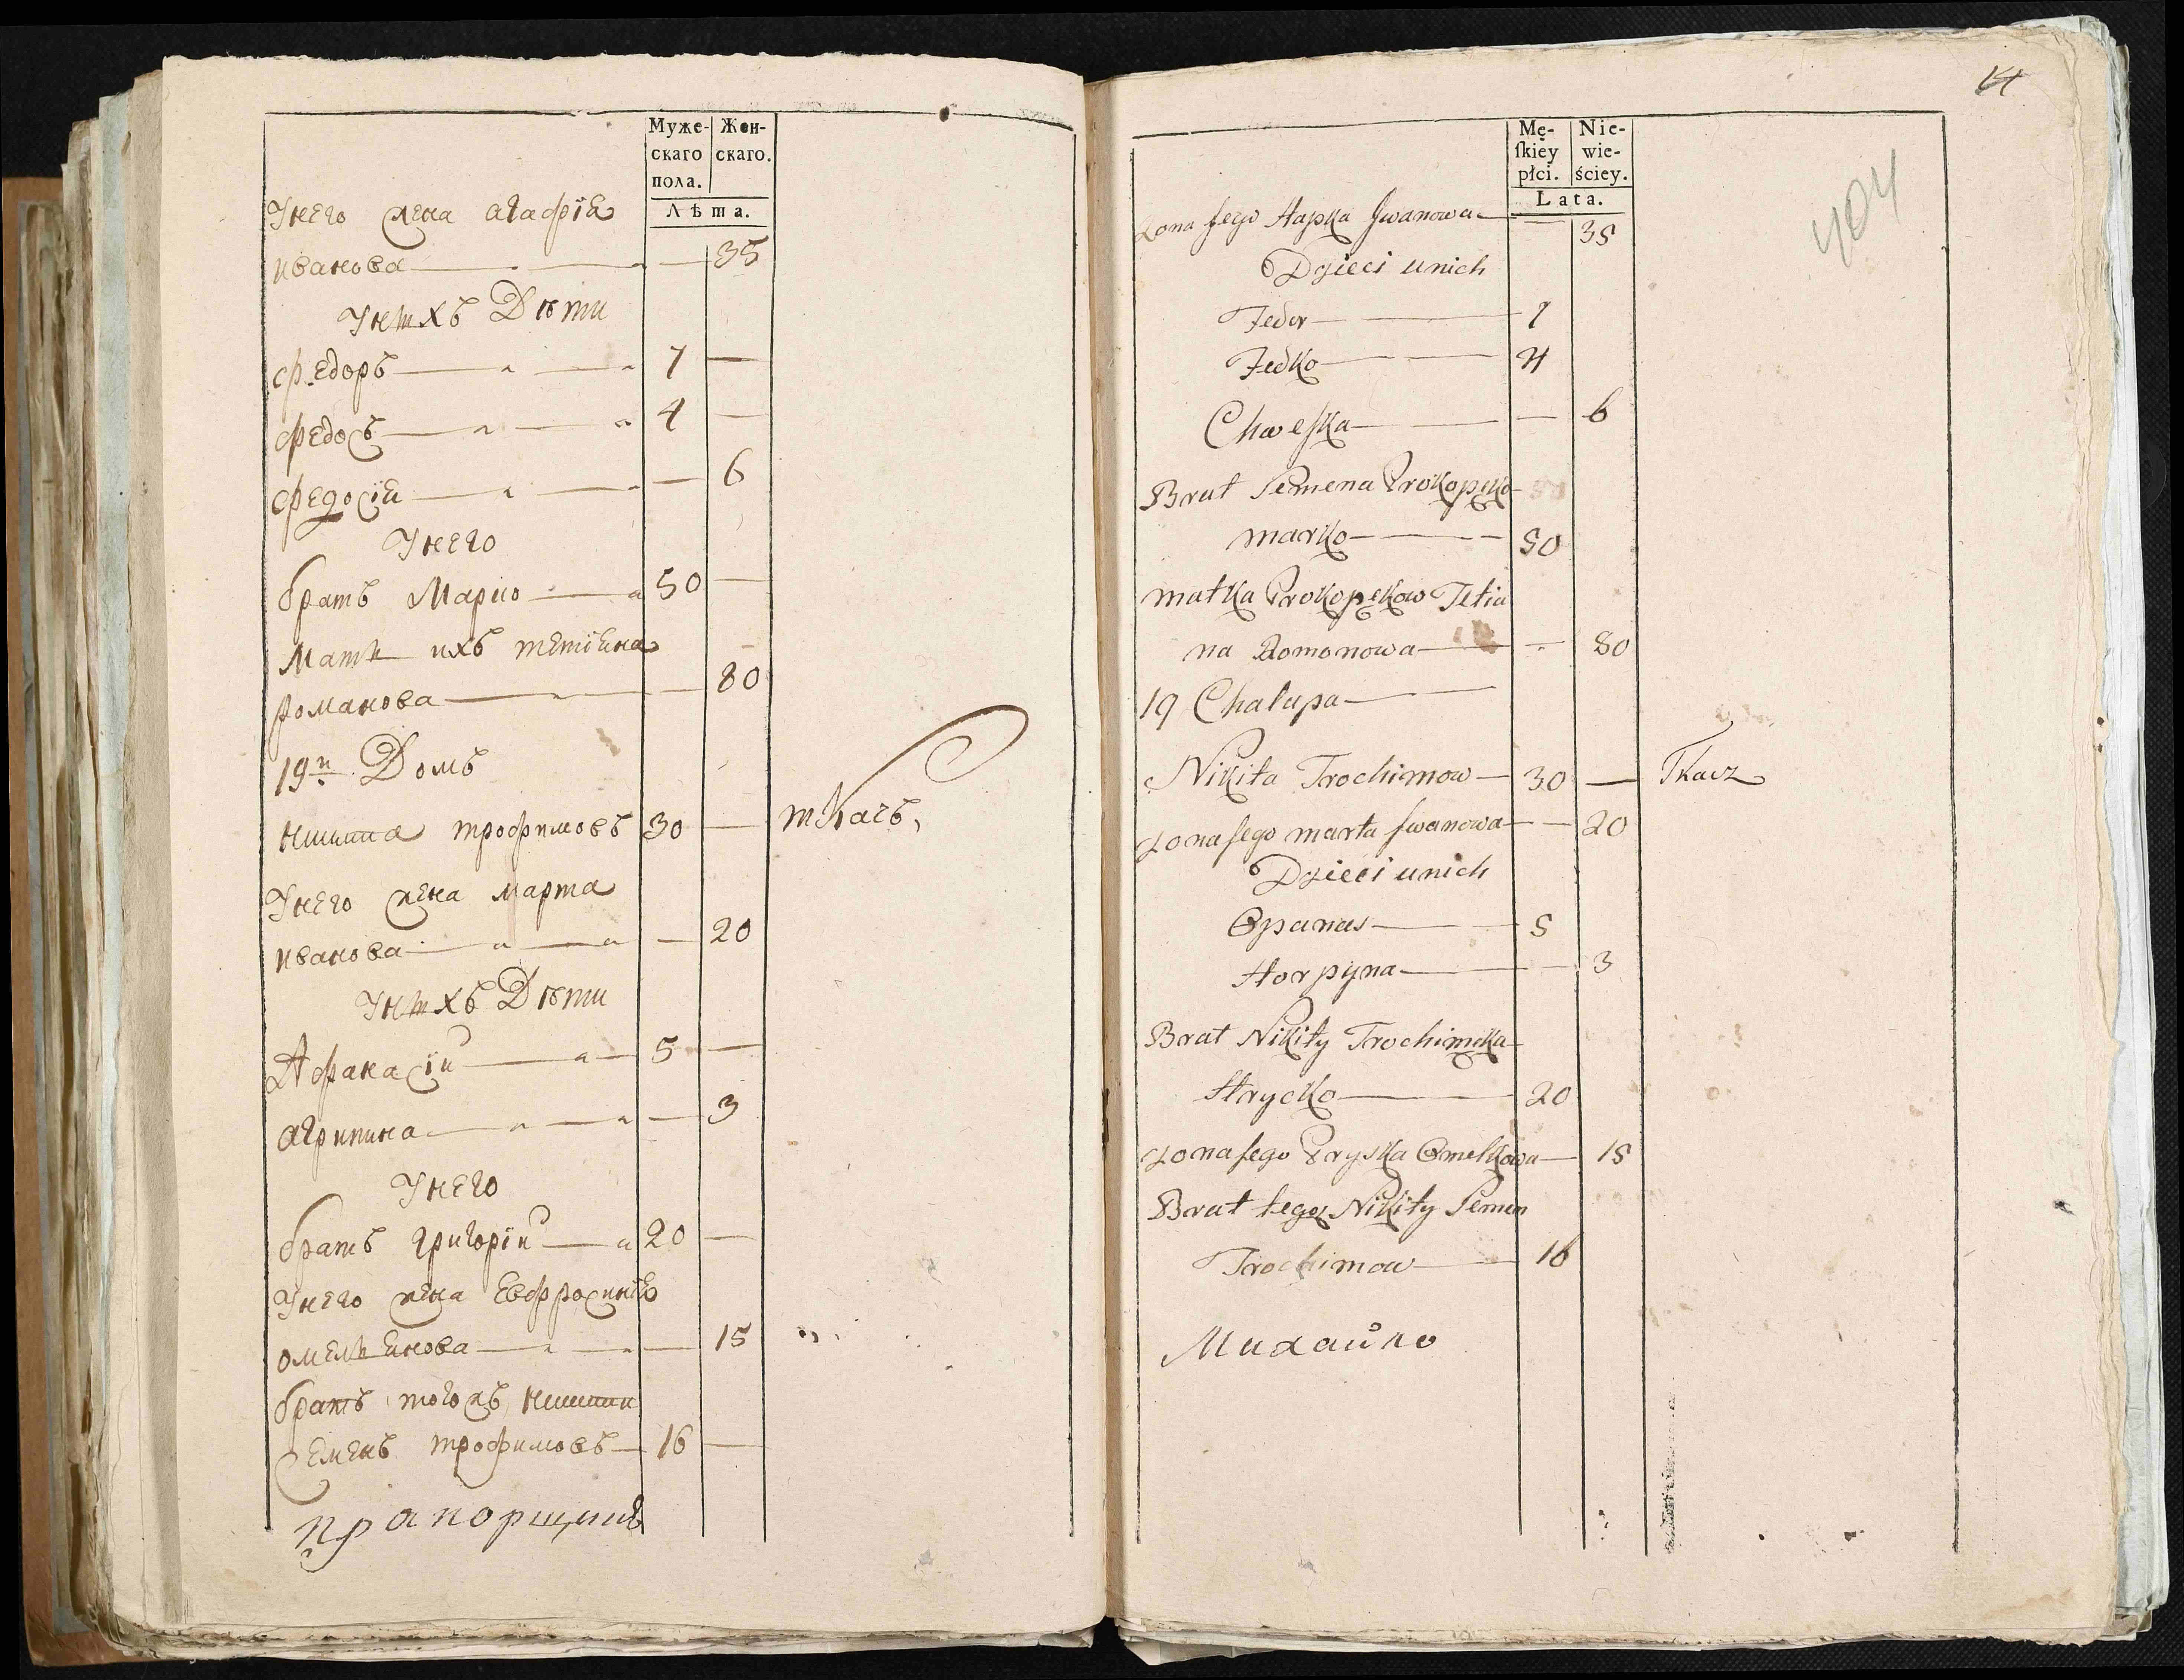 Муже-
скаго
пола.
Жен-
скаго.
Лѣта.
Унего жена агафія
иванова 35
Унихъ Дѣти
федоръ 7
федосъ 4
федосія 6
Унего
братъ Марко 50
Мать ихъ тетіяна
романова 80
19й Домъ
никита трофимовъ 30 ткачъ,
Унего жена марта
иванова 20
Унихъ Дѣти
Афанасіи 5
агрипина 3
Унего
братъ григоріи 20
Унего жена Евфросинія
омельянова 15
братъ тогожъ никиты
Семенъ трофимовъ 16
прапорщикъ
14
404
Mę-
skiey
płci.
Nie-
wie-
ściey.
Lata.
Zona Jego Hapka Jwanowa 35
Dzieci unich
Fedor 7
Fedko 4
Chweska 6
Brat Semena Prokopęko
marko 50
matka Prokopękow Tetia
na Romonowa 80
19 Chalupa
Nikita Trochimow 30 Tkacz
Zona Jego marta Jwanowa 20
Dzieci unich
Opanas 5
Horpyna 3
Brat Nikity Trochimęka
Hrycko 20
Zona Jego Pryska Omelkowa 15
Brat tegoz Nikity Semen
Trochimow 16
Михайло